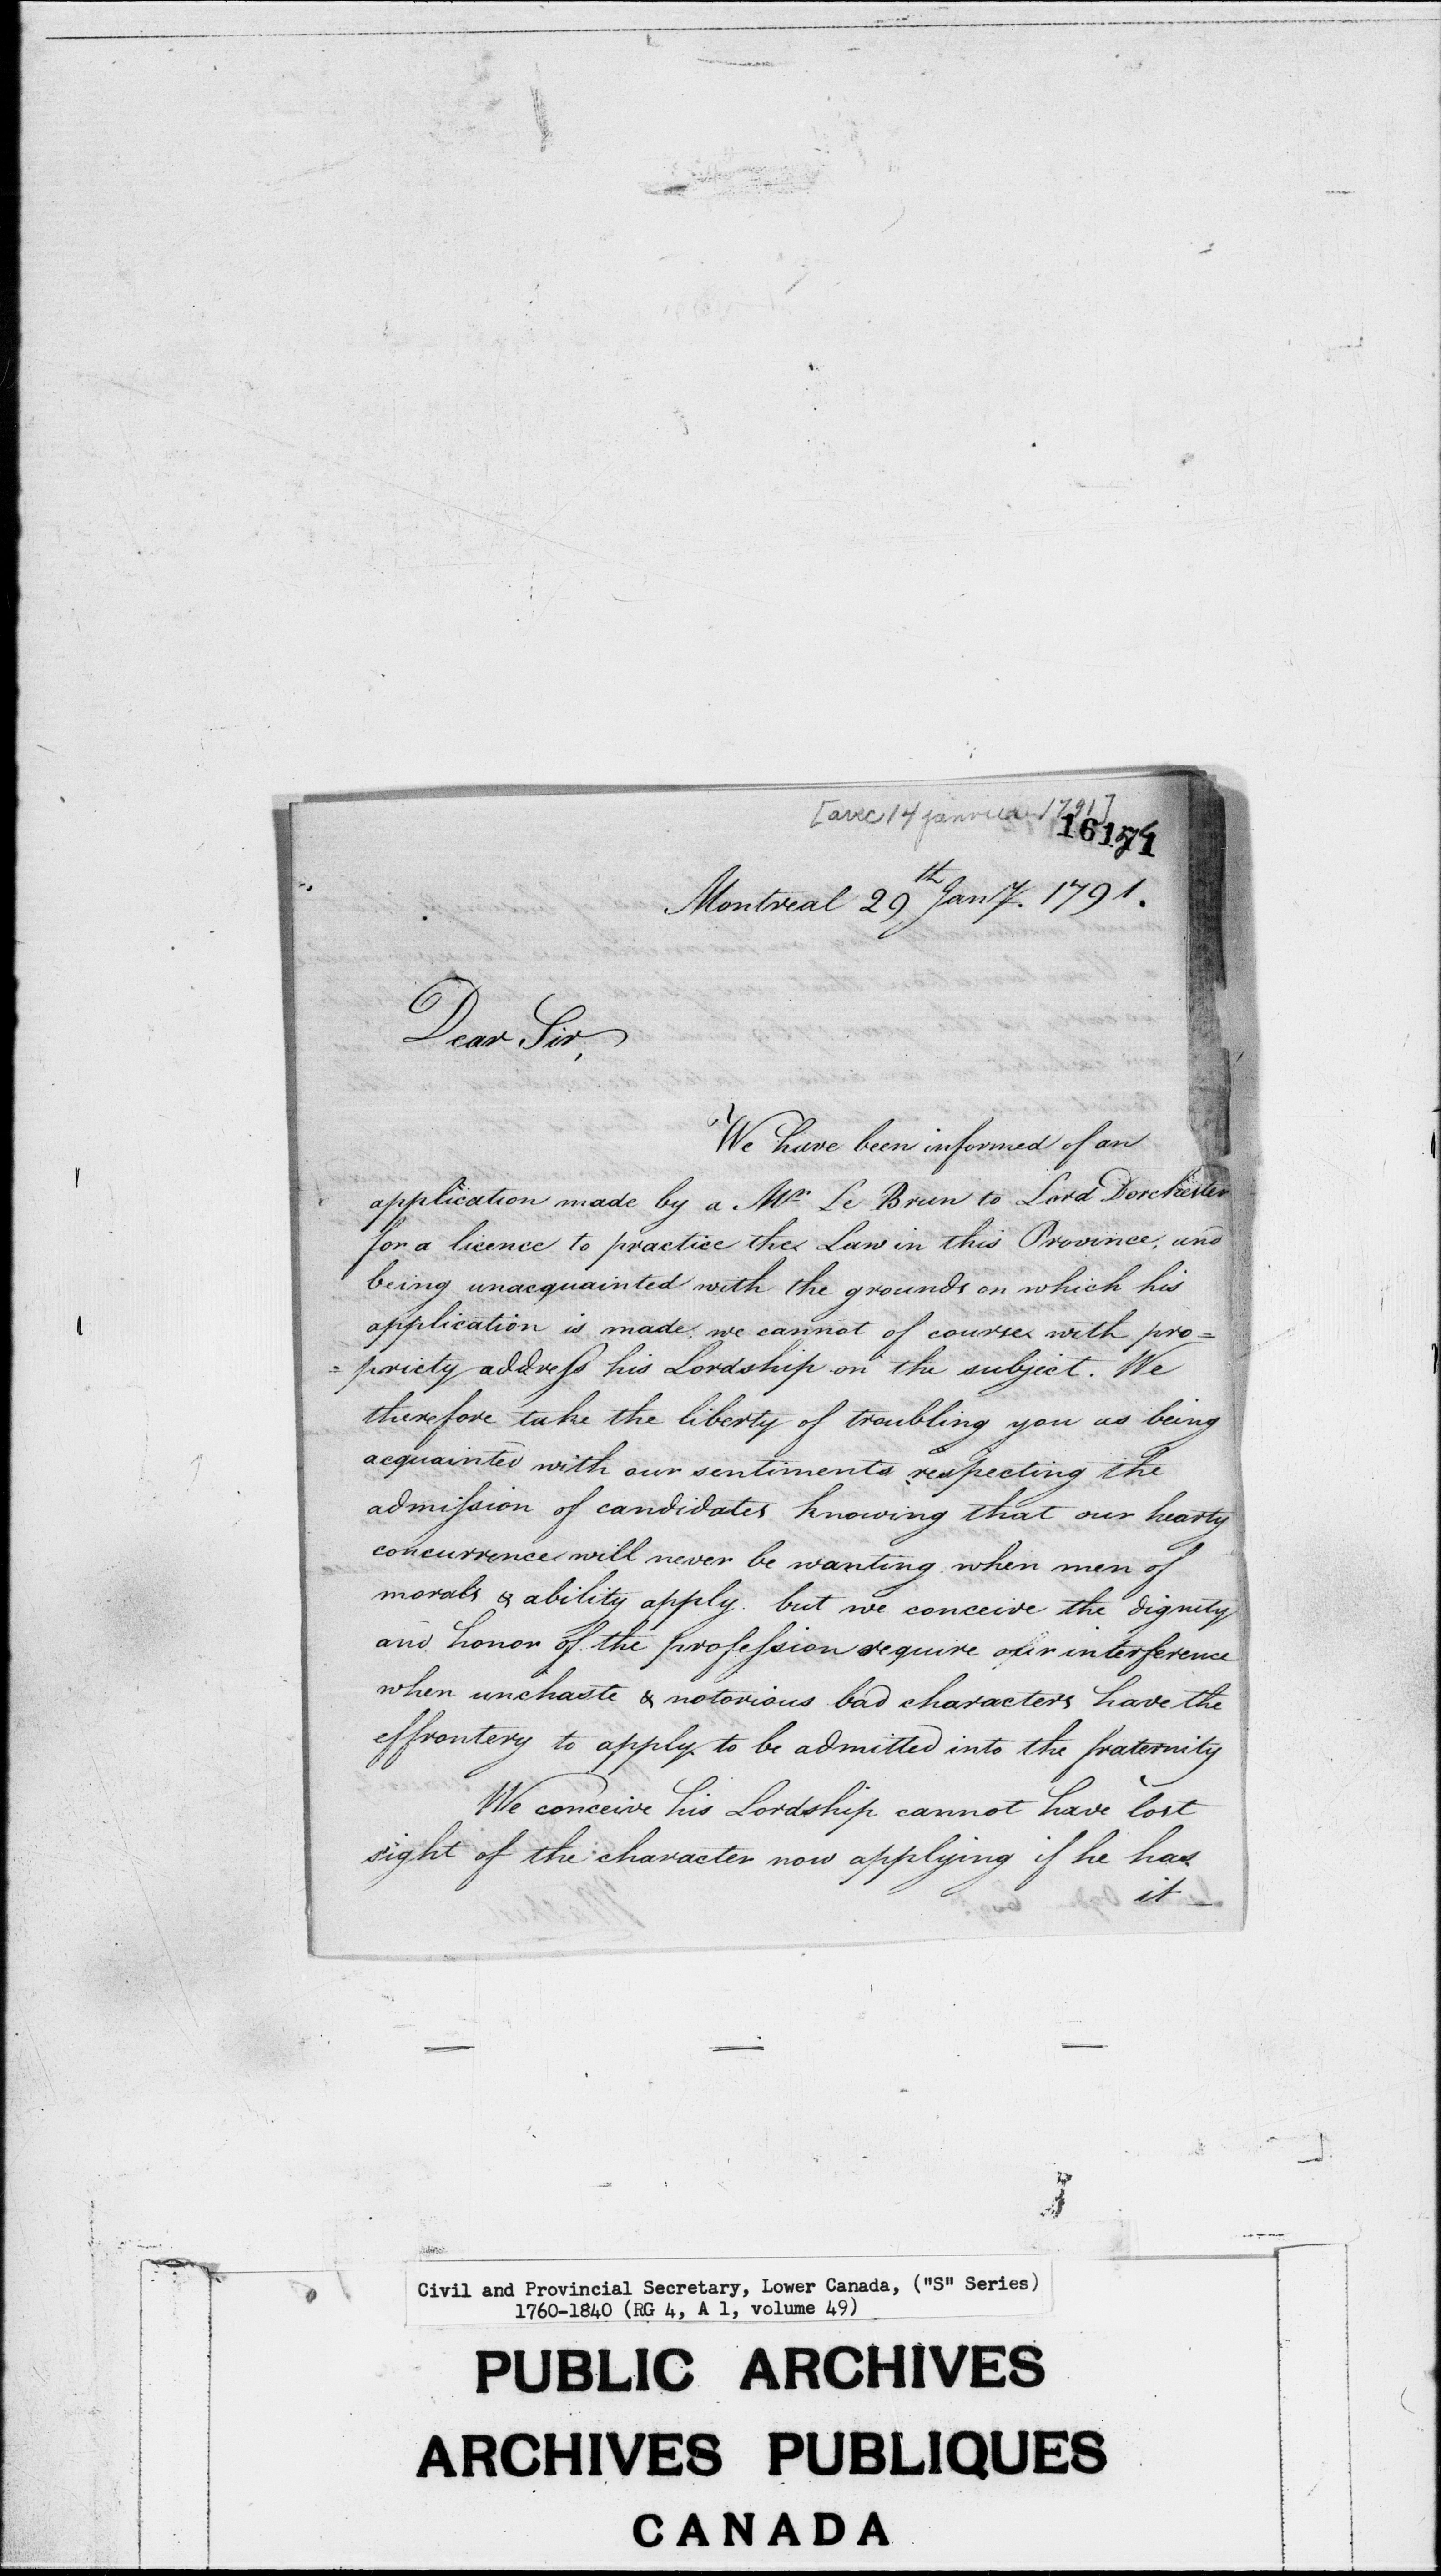 [avec 14 janvier 1791]
16171
Montreal 29th Jany. 1791.
Dear Sir,
We have been informed of an
application made by a Mr Le Brun to Lord Dorchester
for a licence to practice the Law in this Province, and
being unacquainted with the grounds on which his
application is made, we cannot of course with pro=
=priety address his Lordship on the subject. We
therefore take the liberty of troubling you as being
acquainted with our sentiments respecting the
admission of candidates knowing that our hearty
concurrence will never be wanting when men of
morals & ability apply. but we conceive the dignity
and honor of the profession require our interference
when unchaste & notorious bad characters have the
effrontery to apply to be admitted into the fraternity
We conceive his Lordship cannot have lost
sight of the character now applying if he has
it
Civil and Provincial Secretary, Lower Canada, ("S" Series)
1760-1840 (RG 4, A 1, volume 49)
PUBLIC ARCHIVES
ARCHIVES PUBLIQUES
CANADA